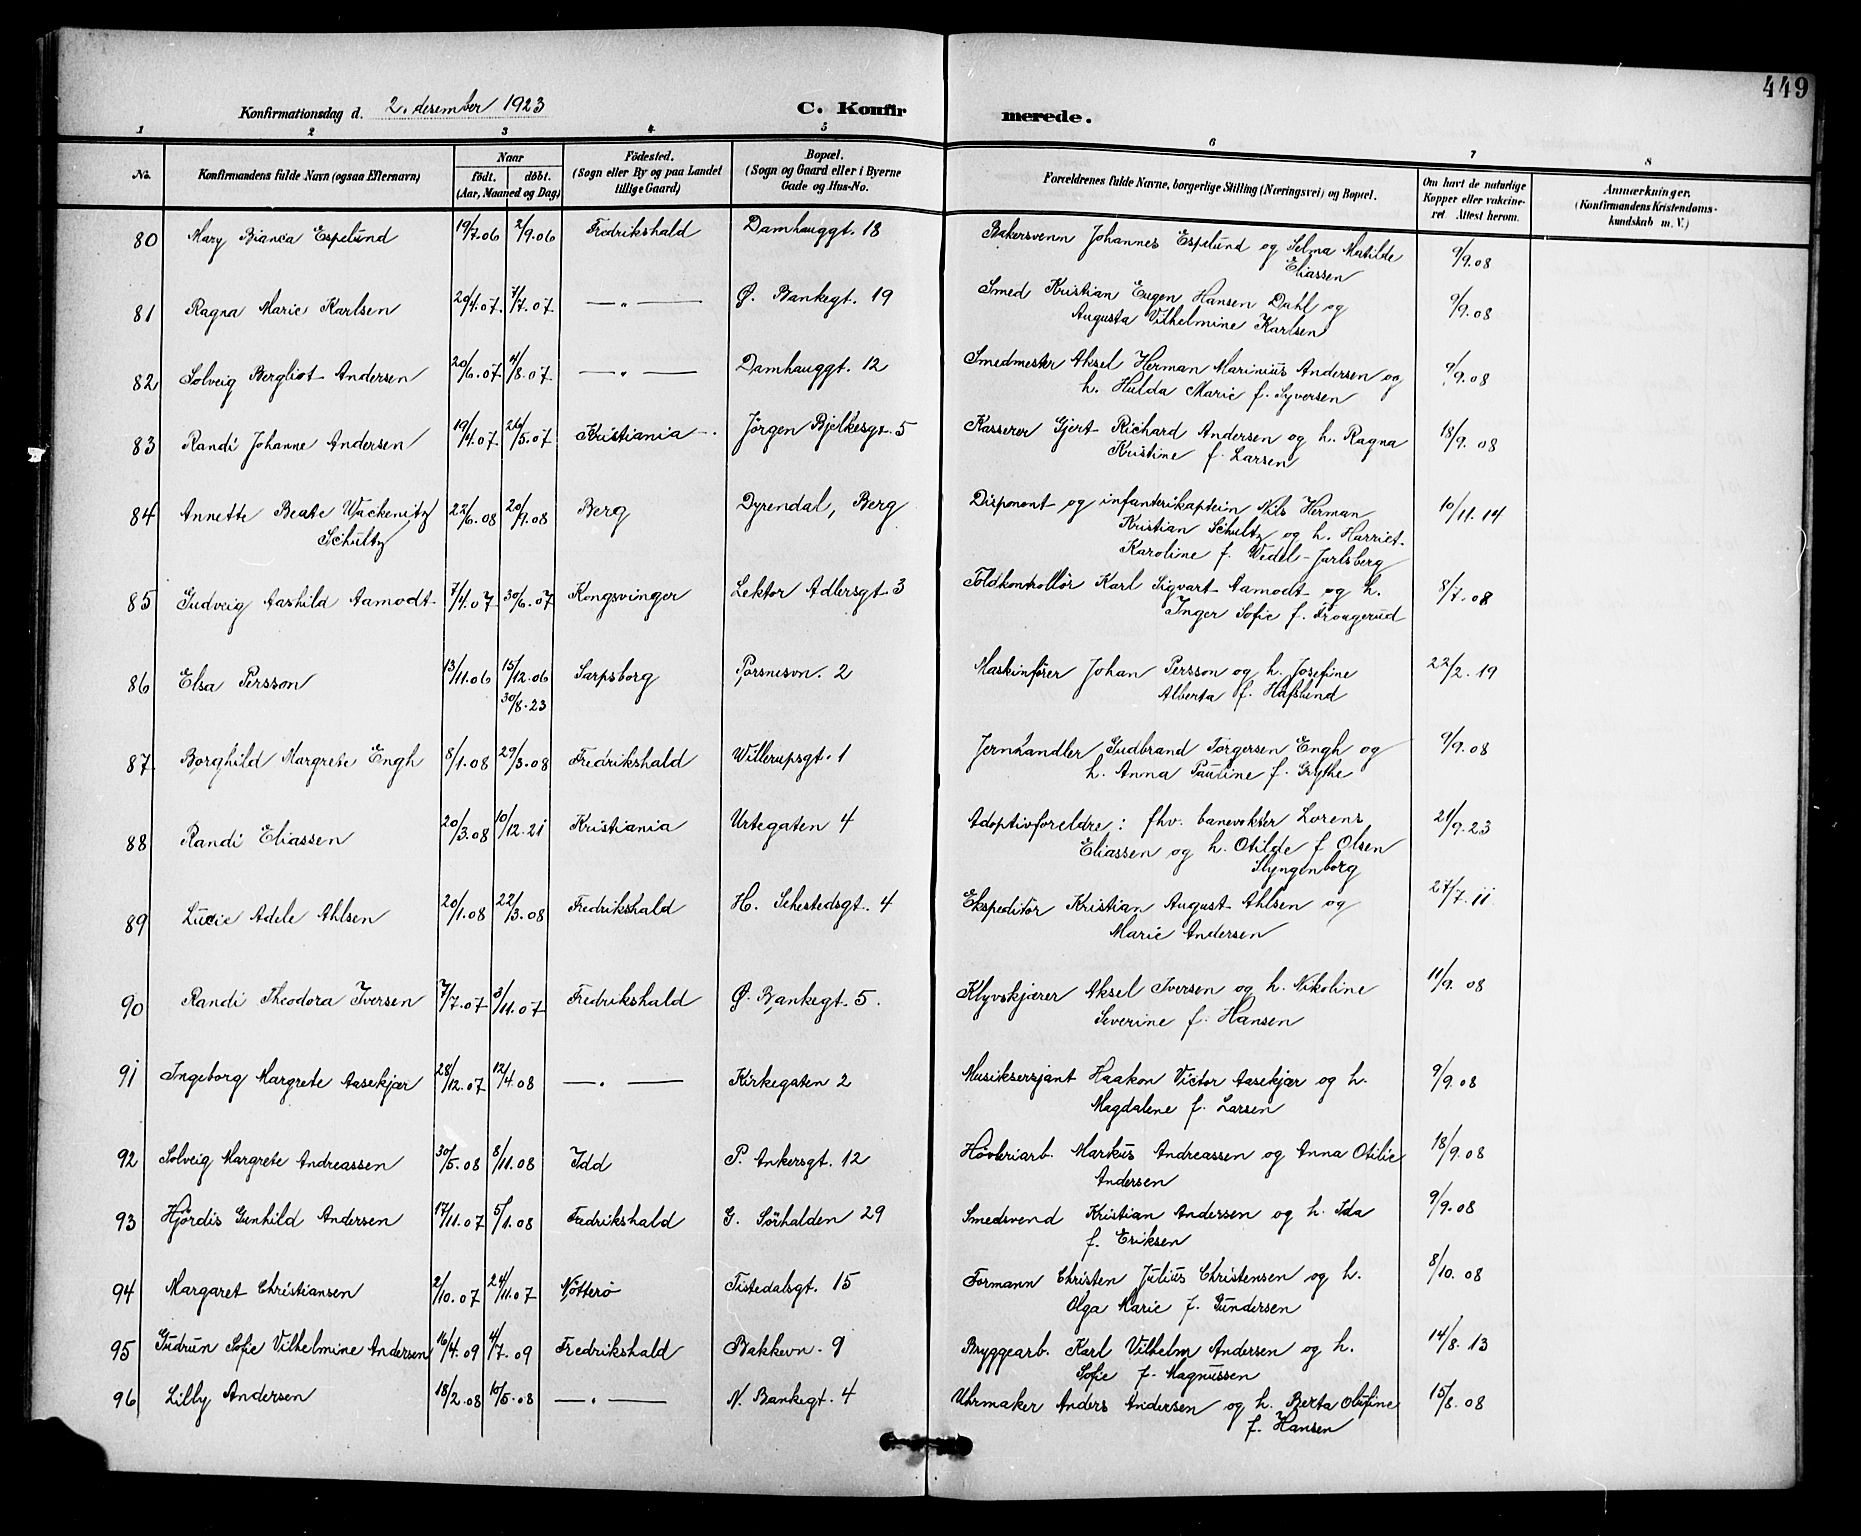 449
Konfirmationsdag d. 2. desember 1923 C. Konfir merede.
1 2 3 4 5 6 7 8
No. Konfirmandens fulde Navn (ogsaa Efternavn) Naar født. døbt. (Aar, Maaned og Dag) Födested. (Sogn eller By og paa Landet tillige Gaard) Bopæl. (Sogn og Gaard eller i Byerne Gade og Hus-No. Forældrenes fulde Navne, borgerlige Stilling (Næringsvei) og Bopæl. Om havt de naturlige Kopper eller vakcineret Attest herom. Anmærkninger. (Konfirmandens Kristendomskundskab m. V.)
80 Mary Bianca Espelund 19/7.06 2/9.06 Fredrikshald Damhauggt. 18 Bakersvenn Johannes Espelund og Selma Matilde 9/9.08
Eliassen
81 Ragna Marie Karlsen 20/4.07 7/7.07 — " — Ø. Bankegt. 19 Smed Kristian Eugen Hansen Dahl og 9/9.08
Augusta Vilhelmine Karlsen
82 Solveig Bergliot Andersen 20/6.07 4/8.07 — " — Damhauggt. 12 Smedmester Aksel Herman Marinius Andersen og 9/9.08
h. Hulda Marie f. Syversen
83 Randi Johanne Andersen 19/4.07 26/5.07 Kristiania Jörgen Bjelkesgt. 5 Kasserer Gjert Richard Andersen og h. Ragna 18/9.08
Kristine f. Larsen
84 Annette Beate Wackenitz 22/6.08 Berg Dyrendal, Berg Disponent og infanterikaptein Nils Herman 10/11.14
Schultz Kristian Schultz og h. Harriet
Karoline f. Wedel-Jarlsberg
85 Gudveig Aashild Aamodt 7/4.07 30/6.07 Kongsvinger Lektor Adlersgt 3 Toldkontrollør Karl Sigvart Aamodt og h. 8/7.08
Inger Sofie f. Fraagerud
86 Elsa Persson 13/11.06 15/12.06 Sarpsborg Porsnesvn. 2 Maskinfører Johan Persson og h. Josefine 22/2.19
30/8.23 Alberta f. Hafslund
87 Borghild Margrete Engh 8/1.08 29/3.08 Fredrikshald Willerupsgt. 1 Jernhandler Gudbrand Torgersen Engh og 9/9.08
h. Anna Pauline f. Grythe
88 Randi Eliassen 20/3.08 10/12.21 Kristiania Urtegaten 4 Adoptivforeldre: fhv. banevokter Lorens 21/9.23
Eliassen og h. Otilde f. Olsen
Slyngenborg
89 Lucie Adele Ahlsen 20/1.08 22/3.08 Fredrikshald H. Sehestedsgt. 4 Ekspeditør Kristian August Ahlsen og 27/7.11
Marie Andersen
90 Randi Theodora Iversen 7/7.07 3/11.07 Fredrikshald Ø. Bankegt. 5. Klyvskjærer Aksel Iversen og h. Nikoline 11/9.08
Severine f. Hansen
91 Ingeborg Margrete Aasekjær 28/12.07 12/4.08 — " — Kirkegaten 2 Musiksersjant Haakon Victor Aasekjær og h. 9/9.08
Magdalene f. Larsen
92 Solveig Margrete Andreassen 30/5.08 8/11.08 Idd P. Ankersgt. 12 Høvleriarb. Markus Andreassen og Anna Otilie 18/9.08
Andersen
93 Hjördis Gunhild Andersen 17/11.07 5/1.08 Fredrikshald G. Sörhalden 29 Smedsvend Kristian Andersen og h. Ida 9/9.08
f. Eriksen
94 Margaret Christiansen 2/10.07 24/11.07 Nötterö Tistedalsgt. 15 Formann Christen Julius Christensen og h. 8/10.08
Olga Marie f. Gundersen
95 Gudrun Sofie Vilhelmine Andersen 16/4.09 4/7.09 Fredrikshald Bakkevn. 9 Bryggearb. Karl Vilhelm Andersen og h. 14/8.13
Sofie f. Magnussen
96 Lilly Andersen 18/2.08 10/5.08 — " — N. Bankegt. 4 Uhrmaker Anders Andersen og h. Berta Olufine 15/8.08
f. Hansen